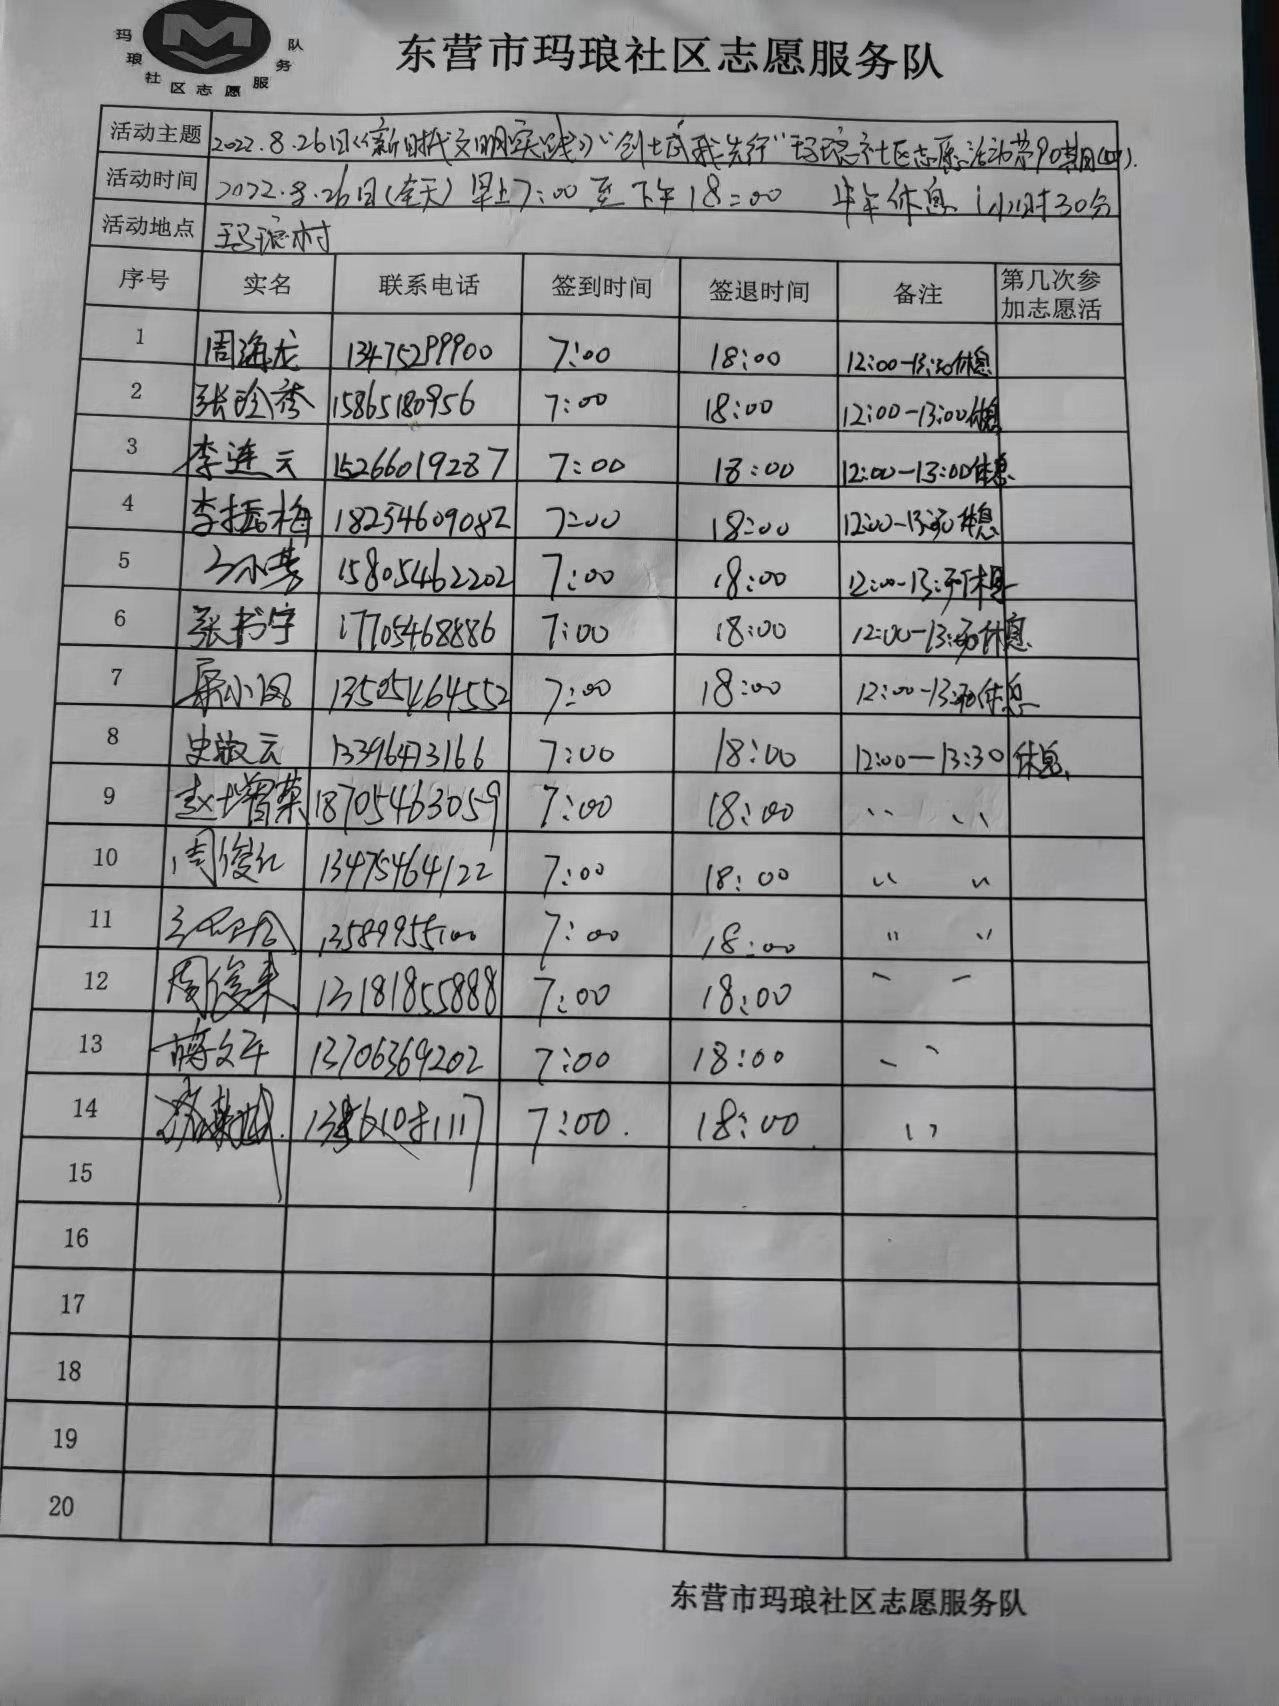 玛琅社区志愿服务队
东营市玛琅社区志愿服务队
活动主题 2022.8.26日《新时代文明实践》"创城我先行"玛琅社区志愿活动第90期
活动时间 2022.8.26日(全天) 早上7:00至下午18:00 中午休息1小时30分
活动地点 玛琅村
序号 实名 联系电话 签到时间 签退时间 备注 第几次参加志愿活
1 周海龙 13475299900 7:00 18:00 12:00-13:30休息
2 张玲秀 15865180956 7:00 18:00 12:00-13:00休息
3 李连云 15266019287 7:00 18:00 12:00-13:00休息
4 李振梅 18254609082 7:00 18:00 12:00-13:30休息
5 15805462202 7:00 18:00 12:00-13:30休息
6 张书宇 17705468886 7:00 18:00 12:00-13:30休息
7 13505464552 7:00 18:00 12:00-13:30休息
8 史淑云 13396473166 7:00 18:00 12:00-13:30休息
9 赵增菊 18705463059 7:00 18:00 〃 〃
10 周俊红 13475464122 7:00 18:00 〃 〃
11 13589955100 7:00 18:00 〃 〃
12 周俊来 13181855888 7:00 18:00
13 蒋文平 13706369202 7:00 18:00
14 7:00 18:00
15
16
17
18
19
20
东营市玛琅社区志愿服务队